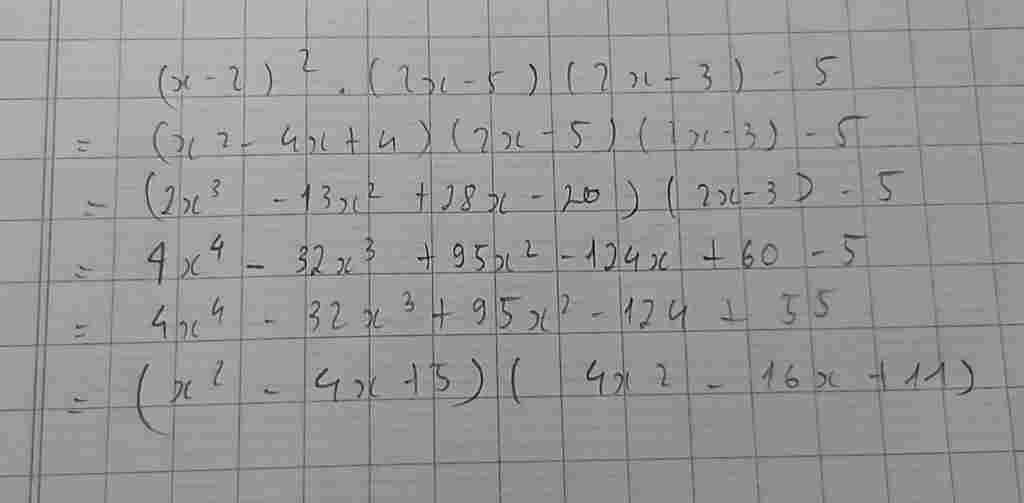 (x - 2)² . (2x - 5) (2x - 3) - 5
= (x² - 4x + 4) (2x - 5) (2x - 3) - 5
= (2x³ - 13x² + 28x - 20) (2x - 3) - 5
= 4x⁴ - 32x³ + 95x² - 124x + 60 - 5
= 4x⁴ - 32x³ + 95x² - 124 + 55
= (x² - 4x + 5) (4x² - 16x + 11)